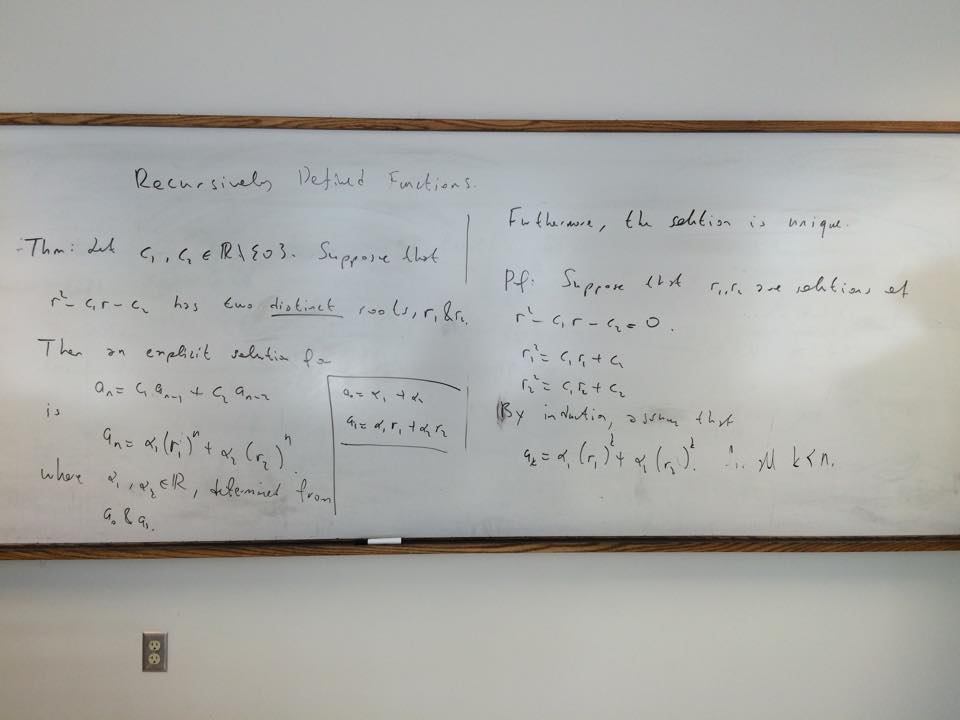 Recursively Defined Functions.
Thm: Let c₁, c₂ ∈ ℝ\{0}. Suppose that
r² - c₁r - c₂ has two distinct roots, r₁ & r₂.
Then an explicit solution for
aₙ = c₁ aₙ₋₁ + c₂ aₙ₋₂
is
aₙ = α₁(r₁)ⁿ + α₂(r₂)ⁿ
where α₁, α₂ ∈ ℝ, determined from
a₀ & a₁.
a₀ = α₁ + α₂
a₁ = α₁r₁ + α₂r₂
Furthermore, the solution is unique.
Pf: Suppose that r₁, r₂ are solutions of
r² - c₁r - c₂ = 0.
r₁² = c₁r₁ + c₂
r₂² = c₁r₂ + c₂
By induction, assume that
aₖ = α₁(r₁)ᵏ + α₂(r₂)ᵏ. all k < n.